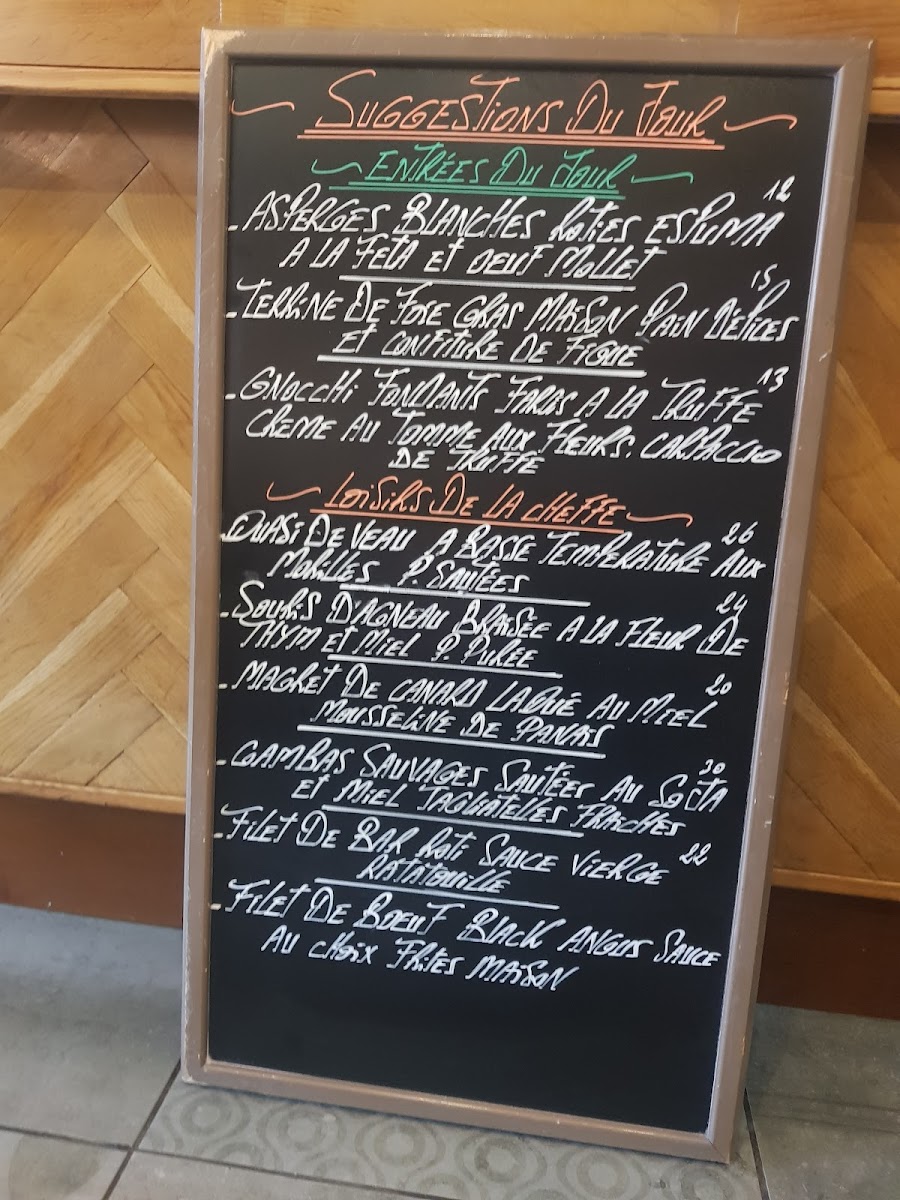 SUGGESTIONS DU JOUR
ENTRÉES DU JOUR
- ASPERGES BLANCHES ROTIES ESPUMA 12
A LA FETA ET OEUF MOLLET
- TERRINE DE FOIE GRAS MAISON PAIN D'ÉPICES 15
ET CONFITURE DE FIGUE
- GNOCCHI FONDANTS FARCIS A LA TRUFFE 13
CREME AU TOMME AUX FLEURS. CARPACCIO
DE TRUFFE
LOISIRS DE LA CHEFFE
- QUASI DE VEAU A BASSE TEMPERATURE AUX 26
MORILLES P. SAUTÉES
- SOURIS D'AGNEAU BRAISÉE A LA FLEUR DE 24
THYM ET MIEL P. PURÉE
- MAGRET DE CANARD LAQUÉ AU MIEL 20
MOUSSELINE DE PANAIS
- GAMBAS SAUVAGES SAUTÉES AU SOJA 30
ET MIEL TAGLIATELLES FRAICHES
- FILET DE BAR ROTI SAUCE VIERGE 22
RATATOUILLE
- FILET DE BOEUF BLACK ANGUS SAUCE
AU CHOIX FRITES MAISON